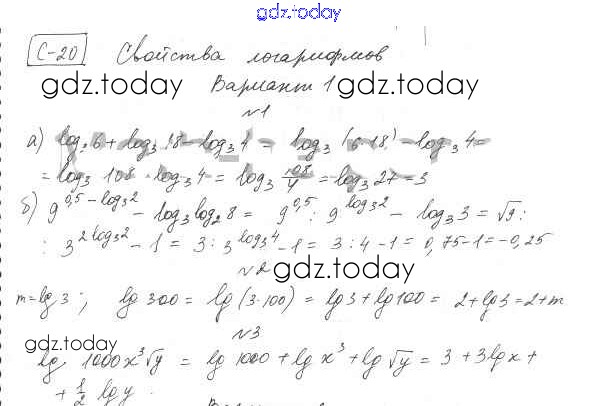 gdz.today
С-20 Свойства логарифмов
gdz.today Вариант 1 gdz.today
№1
а) log₃ 6 + log₃ 18 - log₃ 4 = log₃ (6·18) - log₃ 4 =
= log₃ 108 - log₃ 4 = log₃ 108/4 = log₃ 27 = 3
б) 9^(0,5 - log₃2) - log₃ log₂ 8 = 9^0,5 : 9^(log₃2) - log₃ 3 = √9 :
: 3^(2 log₃2) - 1 = 3 : 3^(log₃4) - 1 = 3 : 4 - 1 = 0,75 - 1 = -0,25
№2 gdz.today
m = lg 3 ; lg 300 = lg (3·100) = lg 3 + lg 100 = 2 + lg 3 = 2 + m
gdz.today №3
lg 1000x³√y = lg 1000 + lg x³ + lg √y = 3 + 3 lg x +
+ 1/2 lg y.